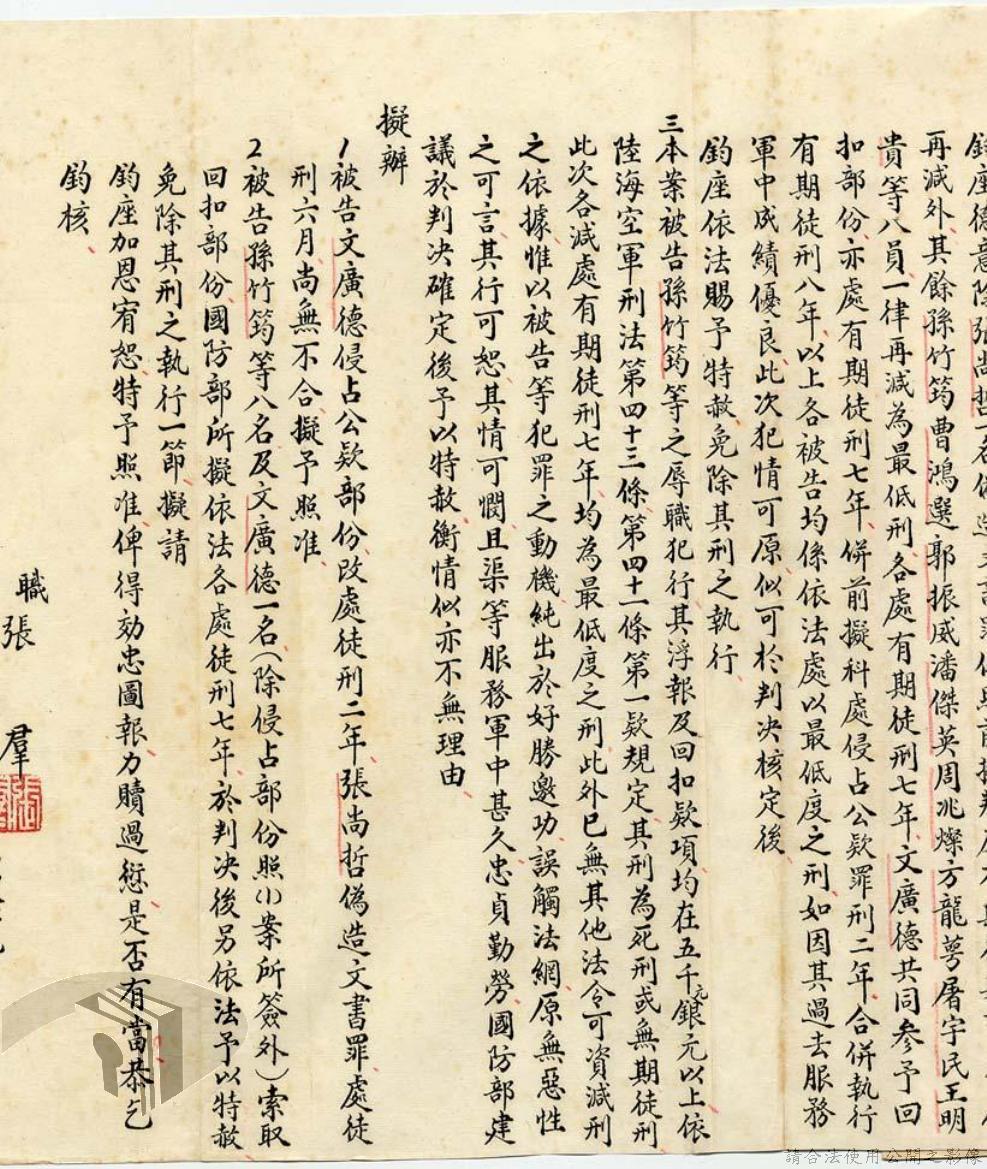 鈞座德意除張尚哲一名偽造文書罪
再減外其餘孫竹筠曹鴻選郭振威潘傑英周兆燦方龍萼屠宇民王明
貴等八員一律再減為最低刑各處有期徒刑七年文廣德共同參予回
扣部份亦處有期徒刑七年併前擬科處侵占公欵罪刑二年合併執行
有期徒刑八年以上各被告均係依法處以最低度之刑如因其過去服務
軍中成績優良此次犯情可原似可於判決核定後
鈞座依法賜予特赦免除其刑之執行
三本案被告孫竹筠等之辱職犯行其浮報及回扣欵項均在五千元銀元以上依
陸海空軍刑法第四十三條第四十一條第一欵規定其刑為死刑或無期徒刑
此次各減處有期徒刑七年均為最低度之刑此外已無其他法令可資減刑
之依據惟以被告等犯罪之動機純出於好勝邀功誤觸法網原無惡性
之可言其行可恕其情可憫且渠等服務軍中甚久忠貞勤勞國防部建
議於判決確定後予以特赦衡情似亦不無理由
擬辦
1被告文廣德侵占公欵部份改處徒刑二年張尚哲偽造文書罪處徒
刑六月尚無不合擬予照准
2被告孫竹筠等八名及文廣德一名（除侵占部份照(1)案所簽外）索取
回扣部份國防部所擬依法各處徒刑七年於判決後另依法予以特赦
免除其刑之執行一節擬請
鈞座加恩宥恕特予照准俾得効忠圖報力贖過愆是否有當恭乞
鈞核
職
張
羣
請合法使用公開之影像